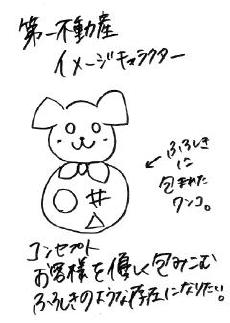 第一不動産
イメージキャラクター
ふろしき
に
包まれた
ワンコ。
コンセプト
お客様を優しく包みこむ
ふろしきのような存在になりたい。